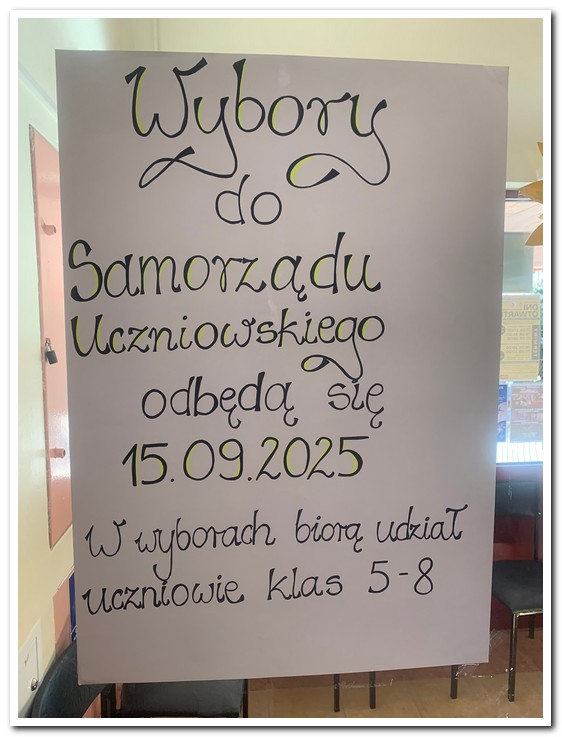 Wybory
do
Samorządu
Uczniowskiego
odbędą się
15.09.2025
W wyborach biorą udział
uczniowie klas 5-8
DNI
OTWARTE